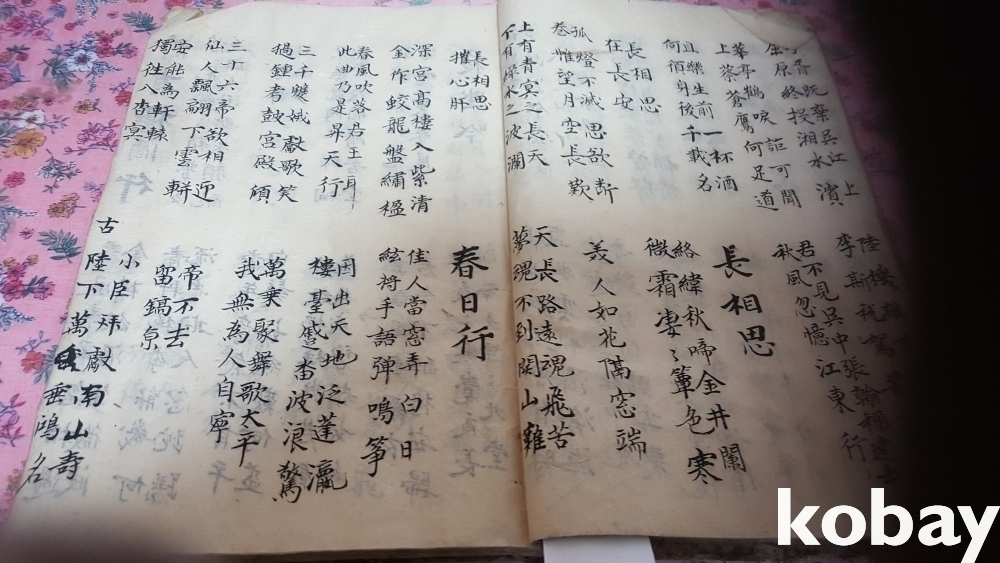 子胥既棄吳江上
屈原終投湘水濱
陸機雄
李斯稅駕
華亭鶴唳詎可聞
上蔡蒼鷹何足道
君不見吳中張翰稱達士
秋風忽憶江東行
且樂生前一杯酒
何須身後千載名
長相思
長相思
在長安
絡緯秋啼金井闌
微霜凄〻簟色寒
孤燈不滅思欲斷
卷帷望月空長歎
美人如花隔窓端
上有青冥之長天
下有淥水之波瀾
天長路遠魂飛苦
夢魂不到関山難
長相思
摧心肝
春日行
深宮高樓入紫清
金作蛟龍盤繡楹
佳人當窓弄白日
絃將手語彈鳴箏
春風吹落君王耳
此曲乃是昇天行
因出天地泛蓬瀛
樓臺蹙沓波浪驚
三千雙蛾獻歌笑
撾鍾考鼓宮殿傾
萬乘聚舞歌太平
我無為人自寧
三十六帝欲相迎
仙人飄翩下雲軿
帝不去
留鎬京
安能為軒轅
獨往入杳冥
小臣拜獻南山壽
陛下萬古垂鴻名
kobay